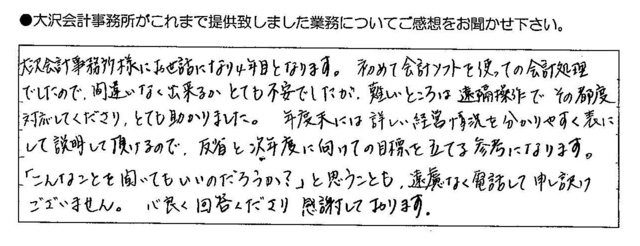 ●大沢会計事務所がこれまで提供致しました業務についてご感想をお聞かせ下さい。
大沢会計事務所様にお世話になり4年目となります。初めて会計ソフトを使っての会計処理
でしたので、間違いなく出来るかとても不安でしたが、難しいところは遠隔操作でその都度
対応してくださり、とても助かりました。年度末には詳しい経営情況を分かりやすく表に
して説明して頂けるので、反省と次年度に向けての目標を立てる参考になります。
「こんなことを聞いてもいいのだろうか?」と思うことも、遠慮なく電話して申し訳
ございません。心良く回答くださり感謝しております。